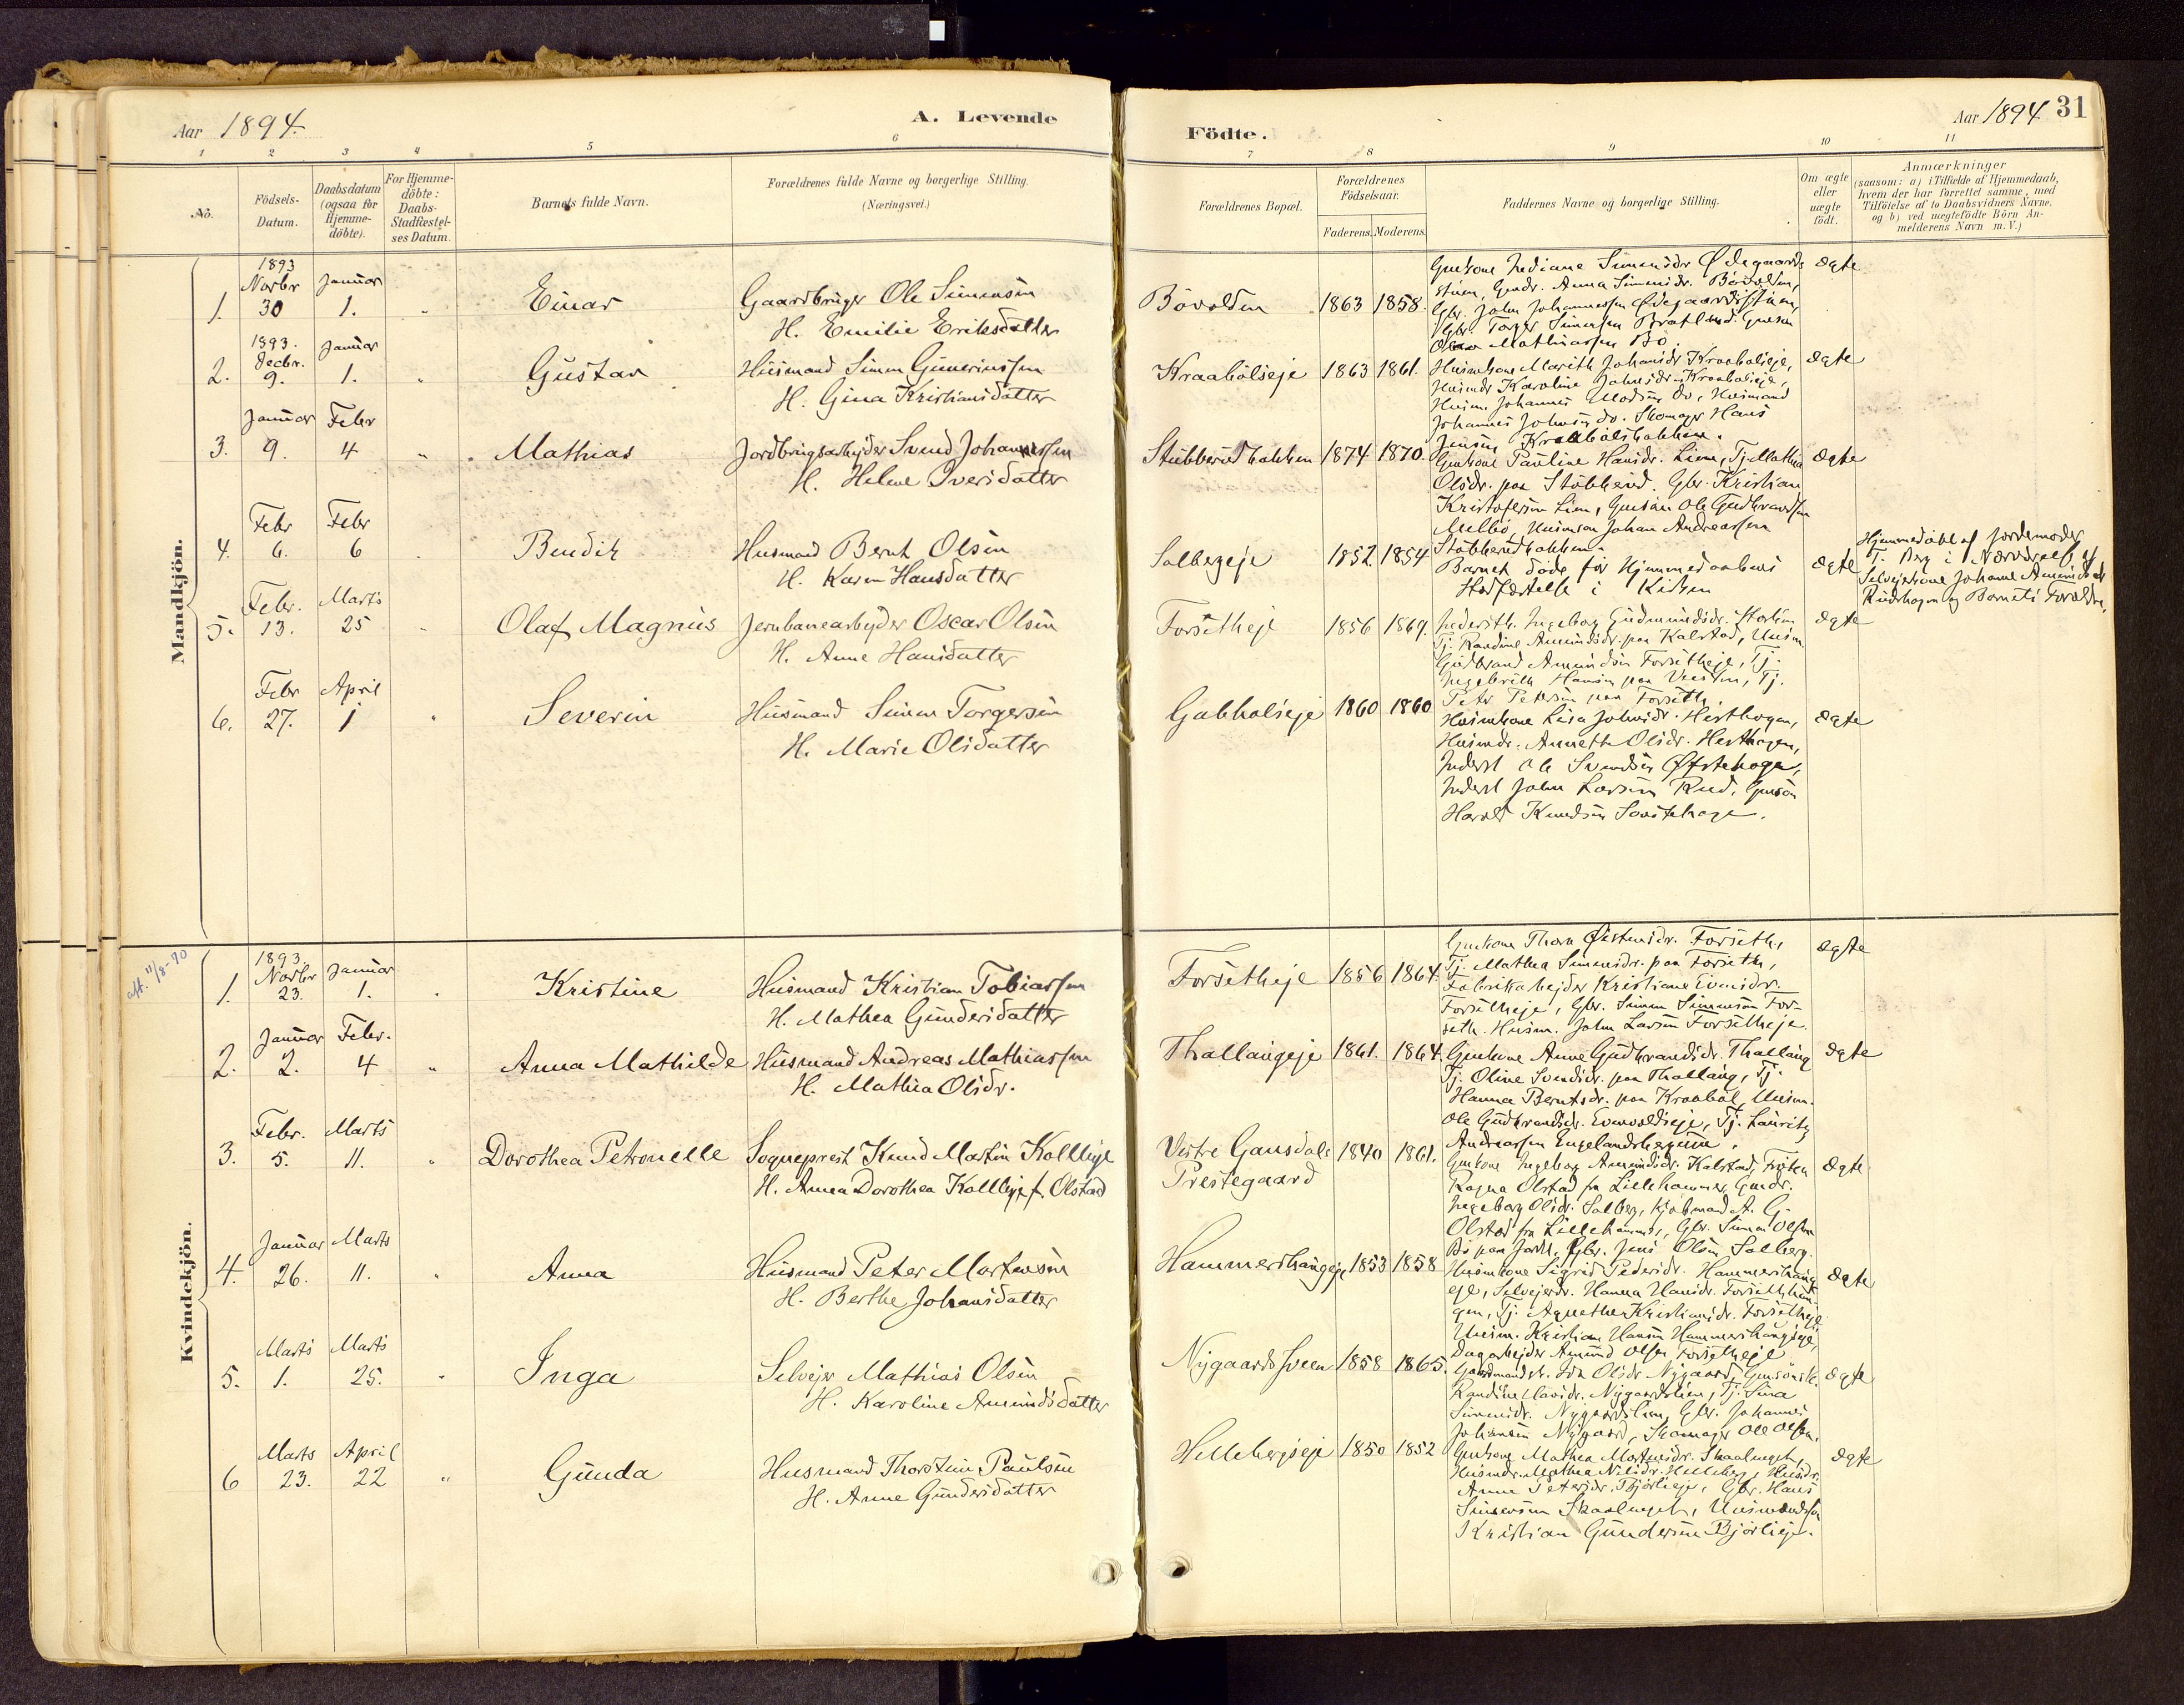 Aar 1894.
A. Levende
Födte.
Aar 1894. 31
1 2 3 4 5 6 7 8 9 10 11
No.
Födsels-
Datum.
Daabsdatum
(ogsaa for
Hjemme-
döbte).
For Hjemme-
döbte:
Daabs-
Stadfæstel-
ses Datum.
Barnets fulde Navn.
Forældrenes fulde Navne og borgerlige Stilling.
(Næringsvei.)
Forældrenes Bopæl.
Forældrenes
Födselsaar.
Faderens. Moderens.
Faddernes Navne og borgerlige Stilling.
Om ægte
eller
uægte
födt.
Anmærkninger
(saasom: a) i Tilfælde af Hjemmedaab,
hvem der har forrettet samme, med
Tilföielse af to Daabsvidners Navne.
og b) ved uægtefödte Börn An-
melderens Navn m. V.)
Mandkjön.
1893
Novbr Januar
1. 30 1. " Einar
Gaardbruger Ole Simensen
H. Emilie Eriksdatter
Bövolden 1863 1858.
Gmkone Indiane Simensdr Ödegaards
stuen, Gmdr. Anna Simensdr. Bövolden,
Gbr. John Johannessen Ödegaardsstuen,
Gbr. Torger Simensen Bratlund. Gmsön
Mathiassen Bö.
ægte
1893.
Decbr. Januar
2. 9. 1. " Gustav
Husmand Simen Guneriussen
H. Gina Kristiansdatter
Kraabölseje 1863 1861.
Husmkone Marith Johansdr Kraabölseje,
Husmdr Karoline Johnsdr Kraabölseje,
Husm. Johannes do, Husmand
Johannes Johnsen do. Skomager Hans
Jensen Kraabölsbakken.
ægte
Januar Febr
3. 9. 4 " Mathias
Jordbrugsarbejder Svend Johannessen
H. Helene Iversdatter
Stubberudbakken 1874 1870.
Gmkone Pauline Hansdr. Lien, Tj. Mathea
Olsdr. paa Stubberud. Gbr. Kristian
Kristofersen Lien, Gmsön Ole Gudbrandsen
Melbö, Husmson Johan Andreassen
Stubberudbakken.
ægte
Febr Febr
4. 6. 6 Bendik
Husmand Bernt Olsen
H. Karen Hansdatter
Solbergeje 1852. 1854
Barnet döde för Hjemmedaabens
Stadfæstelse i Kirken
ægte
Hjemmedöbt af Jordemoder
Tj. Berg i Nærværelse af
Selvejerkone Johanne Amundsdtr
Rudshagen og Barnets Forældre.
Febr. Marts
5. 13. 25 Olaf Magnus
Jernbanearbejder Oscar Olsen
H. Anne Hansdatter
Forsetheje 1856 1869.
Inderstk. Ingeborg Gudmundsdr. Storlien
Tj. Randine Amundsdr. paa Kalstad, Husm.
Gudbrand Amundsen Forsetheje, Tj.
Ingebrigt Hansen paa Veisten, Tj.
Peter Petersen paa Forseth.
ægte
Febr April
6. 27. 1 " Severin
Husmand Simen Torgersen
H. Marie Olsdatter
Gabbolseje 1860 1860
Husmkone Lisa Johnsdr. Hesthagen,
Husmdr. Annette Olsdr. Hesthagen,
Inderst Ole Svendsen Östehagen,
Inderst John Larsen Rud, Gmsön
Harald Knudsen
ægte
Kvindekjön.
aft. 11/8-70
1893.
Novbr Januar
1. 23. 1. " Kristine
Husmand Kristian Tobiassen
H. Mathea Gundersdatter
Forsetheje 1856 1864.
Gmkone Thora Östensdr. Forseth,
Tj. Mathea Simensdr. paa Forseth,
Fabrikkarbejder Kristiane Evensdr.
Forsetheje, Gbr. Simen Simensen For-
seth. Husm. John Larsen Forsetheje.
ægte
Januar Febr.
2. 2. 4 " Anna Mathilde
Husmand Andreas Mathiassen
H. Mathea Olsdr.
Thallaugeje 1861. 1864.
Gmkone Anne Gudbrandsdr. Thallaug
Tj. Oline Svendsdr. paa Thallaug, Tj.
Hanna Berntsdr. paa Kraaböl, Husm.
Ole Gudbrandsen Evenvoldseje, Tj. Lauritz
Andreassen Engelandsbergene.
ægte
Febr. Marts
3. 5. 11. " Dorothea Petronelle
Sogneprest Knud Martin Kolleye
H. Anna Dorothea Kolleye f. Olstad
Vestre Gausdals
Prestegaard
1840 1861.
Gmkone Ingeborg Amundsdr. Kalstad, Fröken
Ragna Olstad fra Lillehammer, Gmdr.
Ingeborg Olsdr. Solberg, Kjöbmand A. G.
Olstad fra Lillehammer, Gbr. Simen Olsen
Bö paa Jorde, Gbr. Jens Olsen Solberg.
ægte
Januar Marts
4. 26. 11. " Anna
Husmand Peter Mortensen
H. Berthe Johansdatter
Hammershaugeje 1853 1858
Husmkone Sigrid Pedersdr. Hammershaug
eje, Selvejerdr. Hanna Hansdr. Forsethhau-
gen, Tj. Agnethe Kristiansdr. Forsetheje
Husm. Kristian Hansen Hammershaugeje,
Dagarbejder Amund Olsen Forsetheje
ægte
Marts Marts
5. 1. 25. " Inga
Selvejer Mathias Olsen
H. Karoline Amundsdatter
Nygaards Sveen 1858 1865.
Gaardmandsk. Ida Olsdr Nygaard, Gmsönsk.
Randine Nygaardslien, Tj. Sina
Simensdr. Nygaardslien, Gbr. Johannes
Johansen Nygaard, Skomager Ole Olsen.
ægte
Marts April
6 23. 22 " Gunda
Husmand Thorstein Paulsen
H. Anne Gundersdatter
Hellebergseje 1850 1852
Gmkone Mathea Mortensdr. Skaalueget,
Husmdr. Mathea Nilsdr. Helleberg, Husmdr.
Anne Petersdr. Bjørlieje, Gbr. Hans
Simensen Skaalueget, Husmandssön
Kristian Gundersen Bjørlieje.
ægte